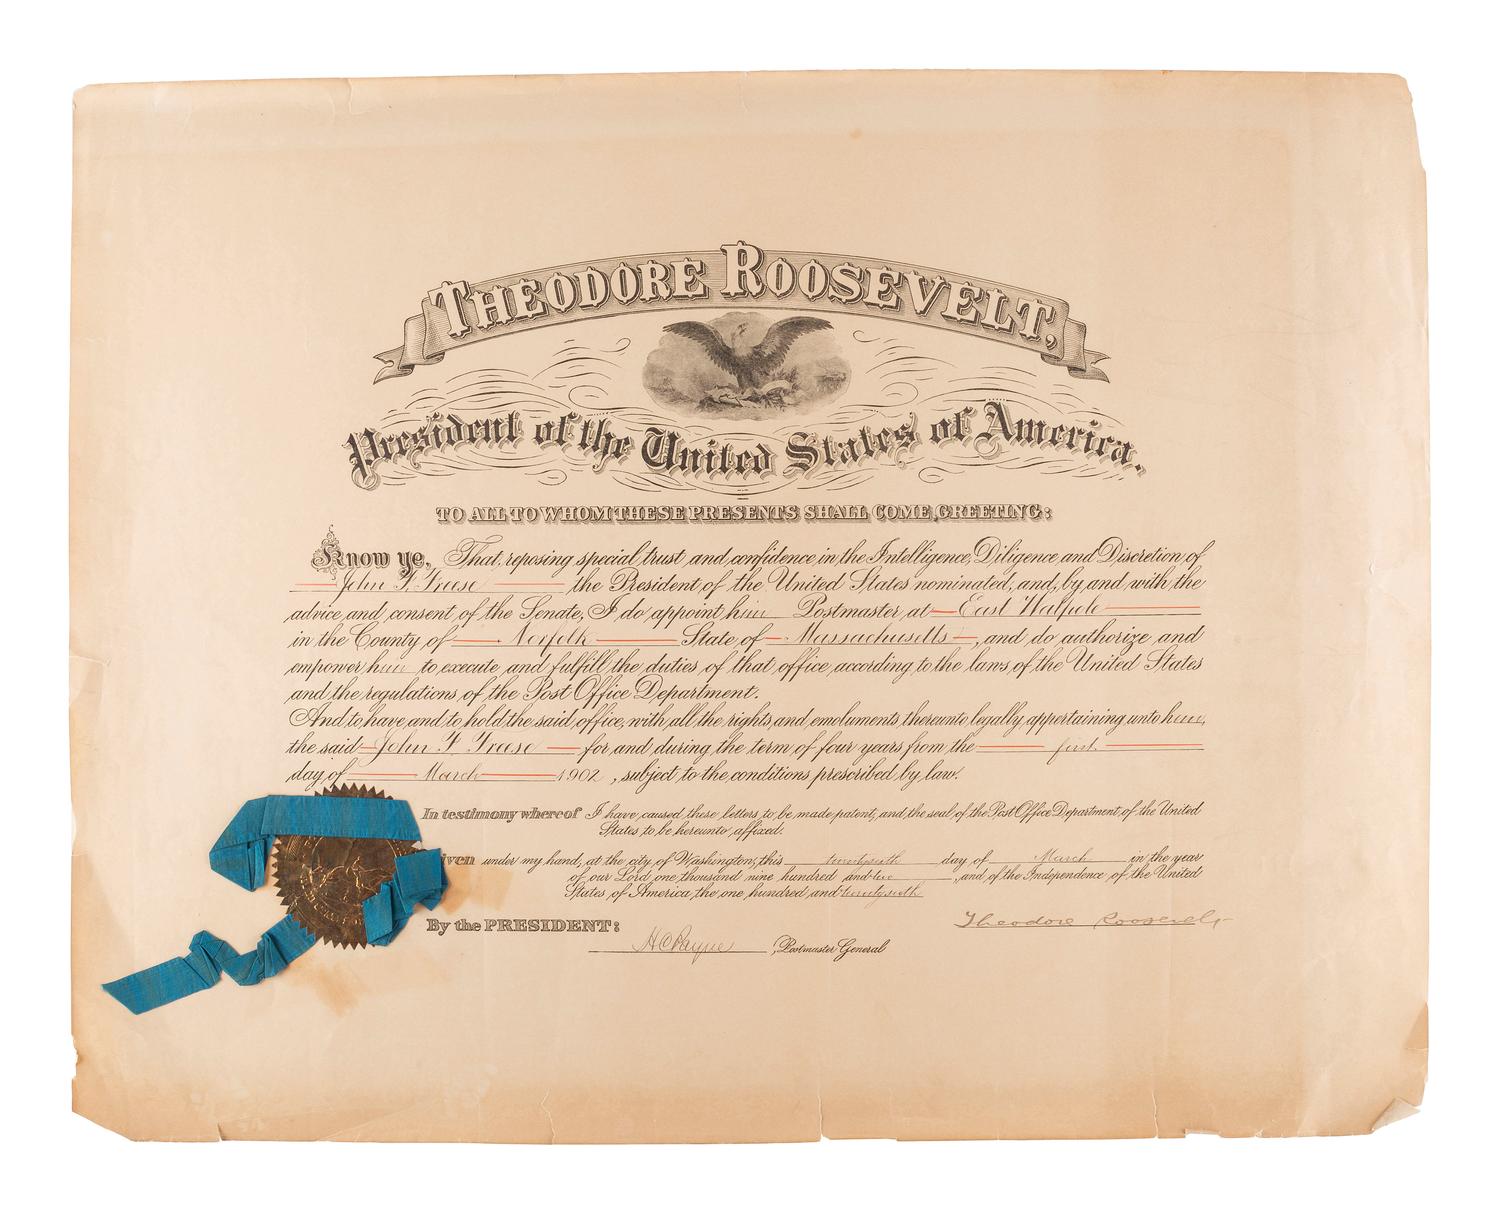 THEODORE ROOSEVELT,
President of the United States of America.
TO ALL TO WHOM THESE PRESENTS SHALL COME, GREETING:
Know ye, That, reposing special trust and confidence in the Intelligence, Diligence and Discretion of
John F. Freese the President of the United States nominated, and, by and with the
advice and consent of the Senate, I do appoint him Postmaster at East Walpole
in the County of Norfolk State of Massachusetts, and do authorize and
empower him to execute and fulfill the duties of that office, according to the laws of the United States
and the regulations of the Post Office Department.
And to have and to hold the said office, with all the rights and emoluments thereunto legally appertaining unto him,
the said John F. Freese for and during the term of four years from the first
day of March 1902, subject to the conditions prescribed by law.
In testimony whereof I have caused these letters to be made patent, and the seal of the Post Office Department of the United
States to be hereunto affixed.
iven under my hand, at the city of Washington, this twentysixth day of March in the year
of our Lord one thousand nine hundred and two, and of the Independence of the United
States of America the one hundred and twentysixth
By the PRESIDENT:
Theodore Roosevelt
H C Payne, Postmaster General